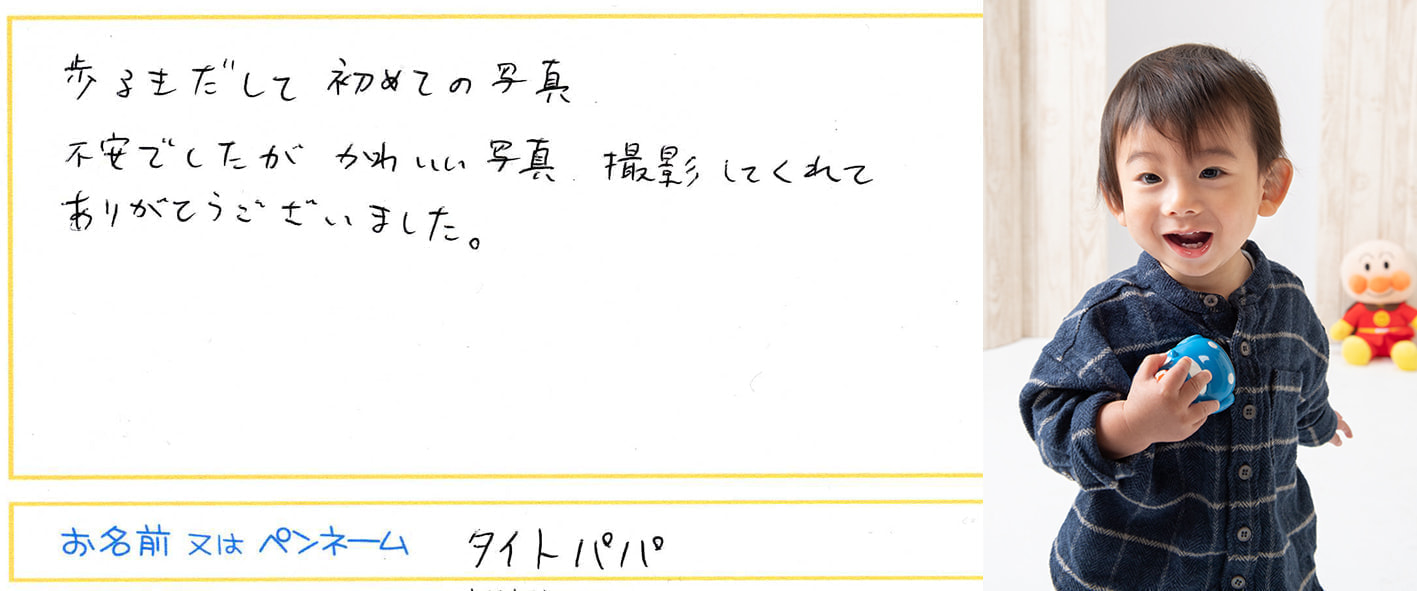 歩るきだして 初めての写真
不安でしたが かわいい写真 撮影してくれて
ありがとうございました。
お名前 又は ペンネーム タイトパパ